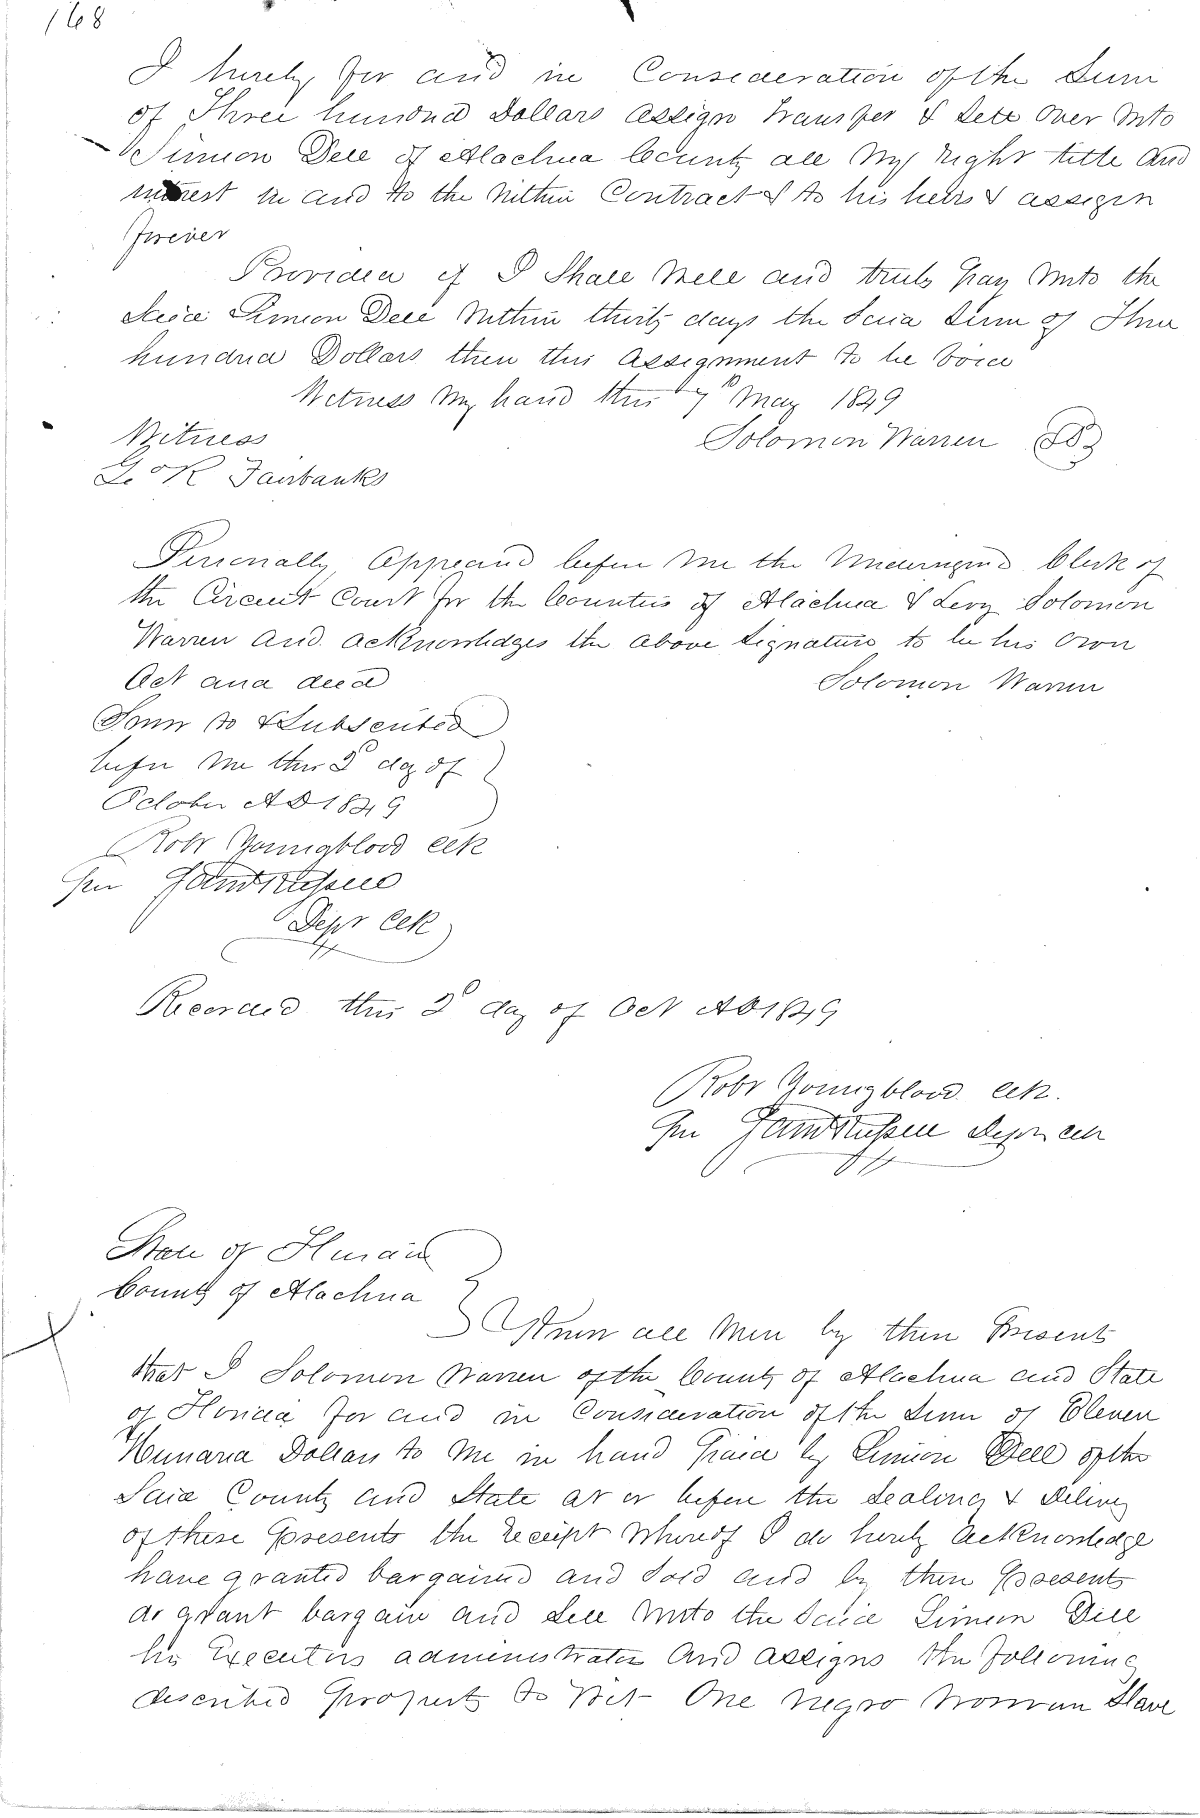 168
I hereby for and in Consideration of the Sum
of Three hundred Dollars assign transfer & Sett over unto
Simeon Dell of Alachua County all my right title and
interest in and to the within Contract & to his heirs & assigns
forever
Provided if I Shall well and truly pay unto the
Said Simeon Dell within thirty days the Said Sum of Three
hundred Dollars then this assignment to be void
Witness my hand this 7th May 1849
Witness
Solomon Warren
G. R Fairbanks
Personally appeared before me the undersigned Clerk of
the Circuit Court for the Counties of Alachua & Levy Solomon
Warren and acknowledges the above Signature to be his own
act and deed
Solomon Warren
Sworn to & Subscribed
before me this 2d day of
October AD 1849
Robt Youngblood Clk
per
Depy Clk
Recorded this 2d day of Oct AD 1849
Robt Youngblood Clk.
per Depy Clk
State of Florida
County of Alachua
Know all Men by these Presents
that I Solomon Warren of the County of Alachua and State
of Florida for and in Consideration of the Sum of Eleven
Hundred Dollars to me in hand paid by Simeon Dell of the
Said County and State at or before the Sealing & Delivery
of these presents the receipt whereof I do hereby acknowledge
have granted bargained and Sold and by these presents
do grant bargain and Sell unto the Said Simeon Dell
his Executors administrators and assigns the following
described property to Wit One negro woman Slave